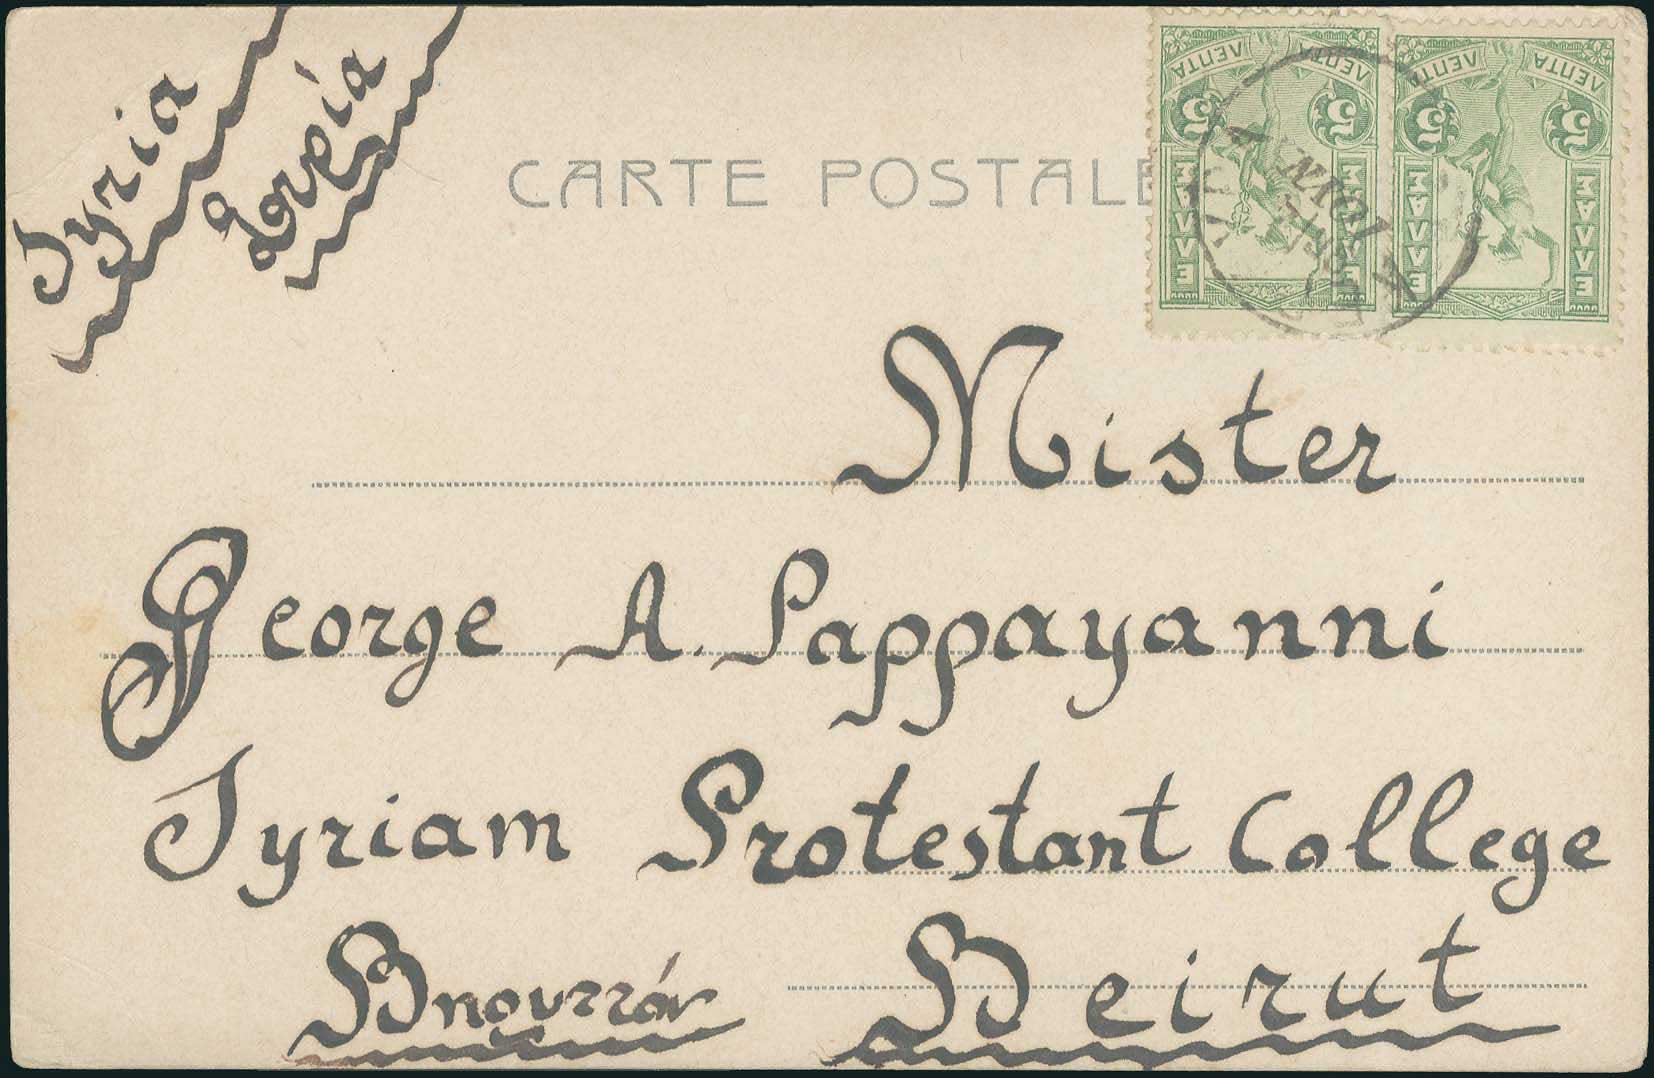 Syria
Συρία
CARTE POSTALE
ΛΕΠΤΑ ΛΕΠΤΑ
5 5
ΕΛΛΑΣ ΕΛΛΑΣ
ΛΕΠΤΑ ΛΕΠΤΑ
5 5
ΕΛΛΑΣ ΕΛΛΑΣ
ΙΟΥΝ
Mister
George A. Pappayanni
Syriam Protestant College
Βηουττόν Beirut